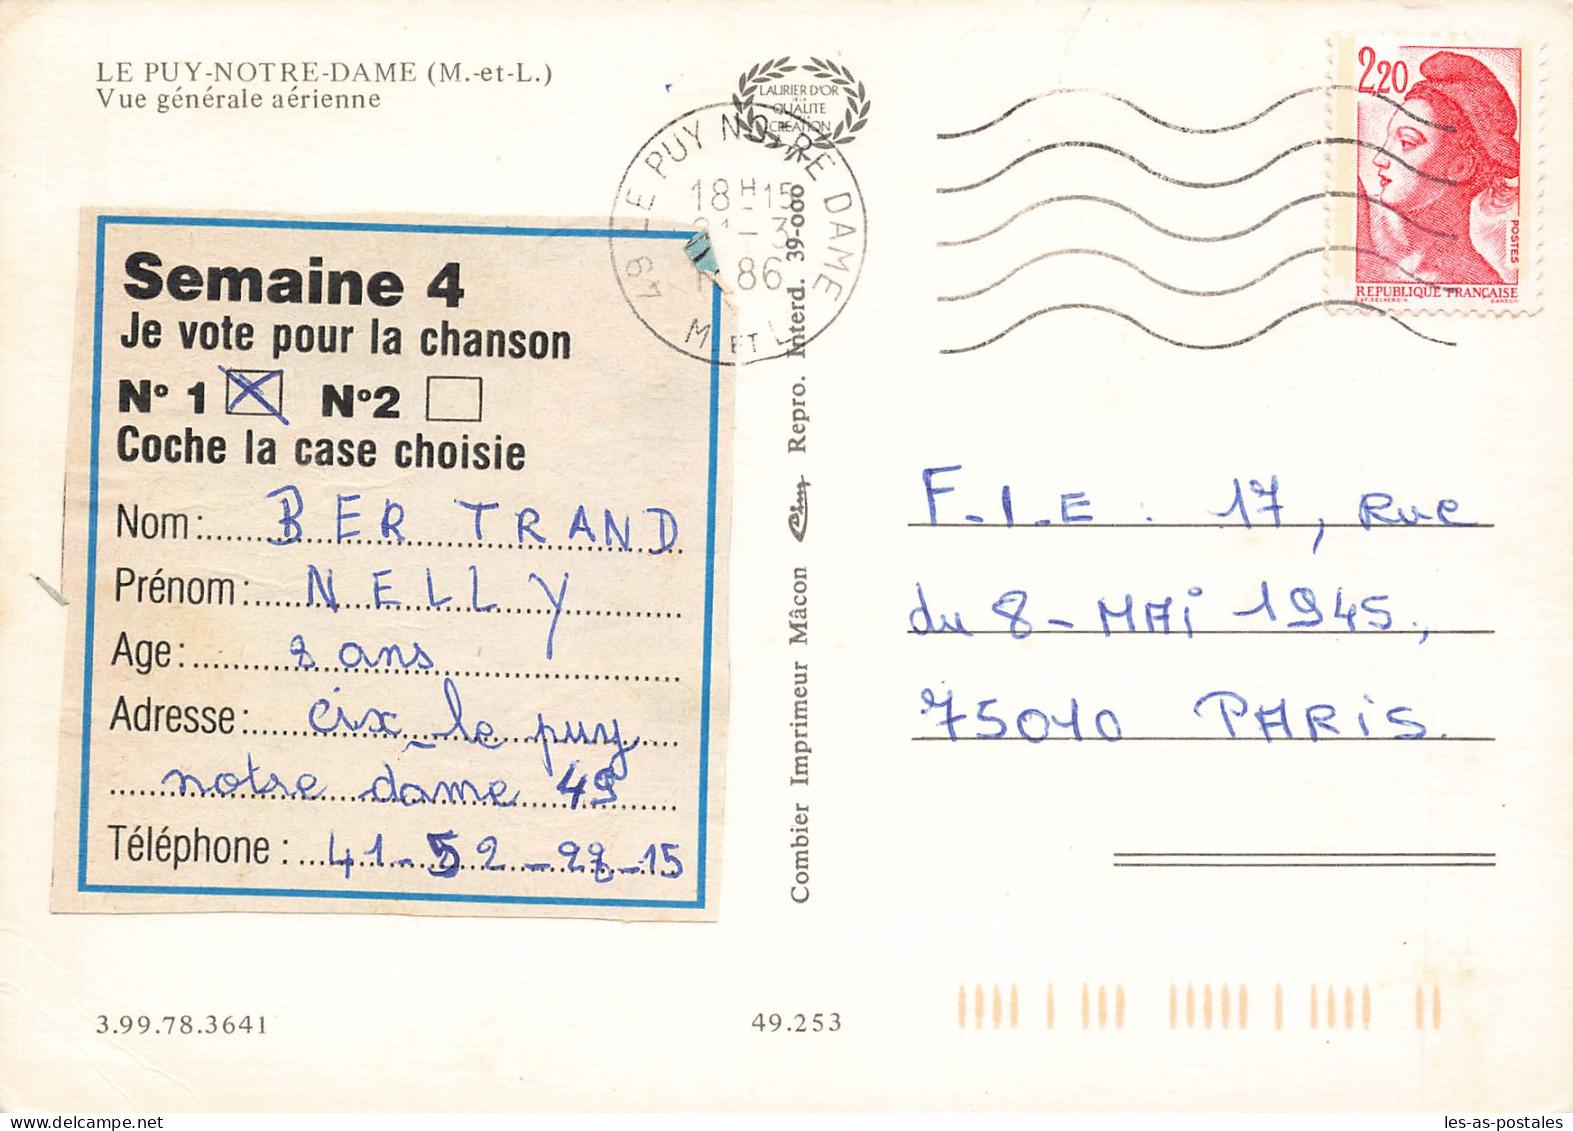 LE PUY-NOTRE-DAME (M.-et-L.)
Vue générale aérienne
LAURIER D'OR
DE LA
QUALITE
CREATION
49 LE PUY NOTRE DAME
18H15
3
86
M. ET L.
2,20
POSTES
REPUBLIQUE FRANÇAISE
Semaine 4
Je vote pour la chanson
N° 1 N°2
Coche la case choisie
Nom: BERTRAND
Prénom: NELLY
Age: 8 ans
Adresse: Cix_le puy
notre dame 49
Téléphone: 41-52-28-15
Combier Imprimeur Mâcon Repro. Interd. 39-000
F.I.E: 17, Rue
du 8-MAi 1945,
75010 PARiS.
3.99.78.3641
49.253
les-as-postales